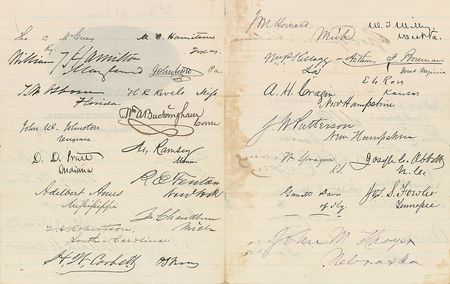 Tho C McCreery
Ky
William T Hamilton
Maryland
T. W. Osborn
Florida
John W. Johnston
Virginia
D. D. Pratt
Indiana
Adelbert Ames
Mississippi
T. J. Robertson,
South-Carolina
H W. Corbett
M. C. Hamilton
Texas.
John Scott
Pa.
H R Revels Miss
Wm A Buckingham
Conn
A. Ramsey
Minn.
R E Fenton
New York
Z. Chandler
Mich
J M Howard
Mich
Wm P Kellogg
La
A. H. Cragin
New Hampshire
J W Patterson
New Hampshire
W Sprague
R.I.
Garrett Davis
of Ky.
John M Thayer
Nebraska
W. T. Willey
West Va.
Arthur I. Boreman
West Virginia
E G Ross
Kansas
Joseph C. Abbott
N. C.
Jos. S. Fowler
Tennessee